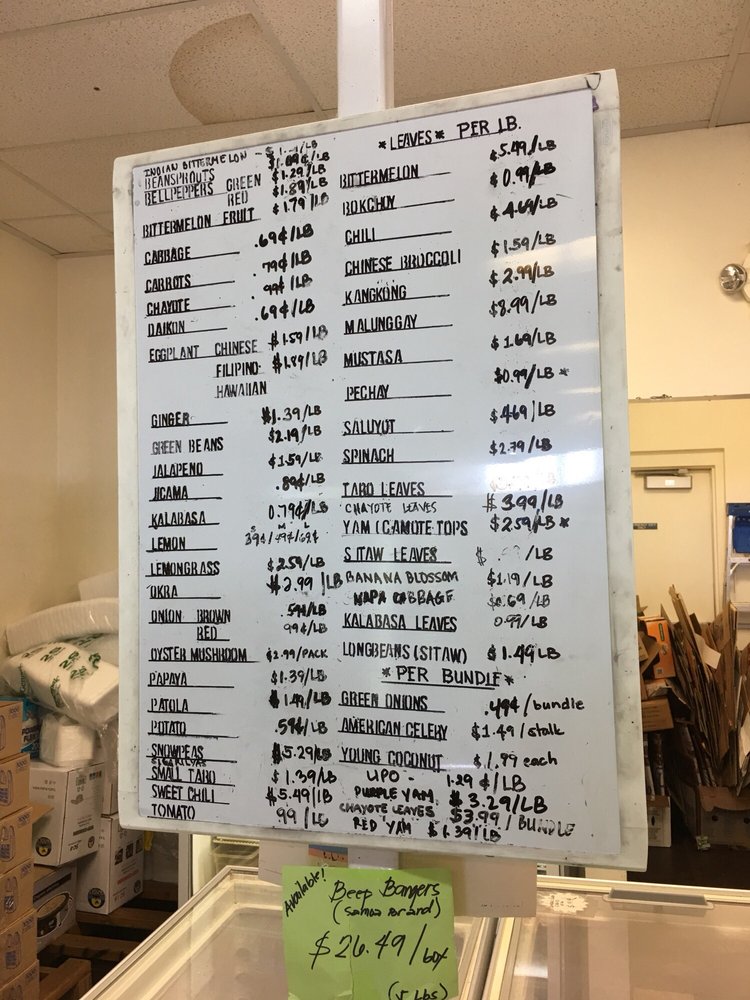 INDIAN BITTERMELON -
BEANSPROUTS $1.09¢/LB
BELLPEPPERS GREEN $1.29/LB
RED $1.89/LB
BITTERMELON FRUIT $1.79/LB
CABBAGE .69¢/LB
CARROTS .79¢/LB
CHAYOTE .99¢/LB
DAIKON .69¢/LB
EGGPLANT CHINESE $1.59/LB
FILIPINO- $1.89/LB
HAWAIIAN
GINGER $1.39/LB
GREEN BEANS $2.19/LB
JALAPENO $1.59/LB
JICAMA .89¢/LB
KALABASA 0.79¢/LB
S M L
LEMON 39¢/49¢/69¢
LEMONGRASS $2.59/LB
OKRA $2.99/LB
ONION BROWN .59¢/LB
RED 99¢/LB
OYSTER MUSHROOM $2.99/PACK
PAPAYA $1.39/LB
PATOLA $1.49/LB
POTATO .59¢/LB
SNOWPEAS $5.29/LB
SMALL TARO $1.39/LB
SWEET CHILI $5.49/LB
TOMATO 99/LB
*LEAVES* PER LB.
BITTERMELON $5.49/LB
BOKCHOY $0.99/LB
CHILI $4.69/LB
CHINESE BROCCOLI $1.59/LB
KANGKONG $2.99/LB
MALUNGGAY $8.99/LB
MUSTASA $1.69/LB
PECHAY $0.99/LB *
SALUYOT $4.69/LB
SPINACH $2.79/LB
TARO LEAVES
CHAYOTE LEAVES $3.99/LB
YAM (CAMOTE TOPS $2.59/LB *
SITAW LEAVES $ /LB
BANANA BLOSSOM $1.19/LB
NAPA CABBAGE $0.69/LB
KALABASA LEAVES 0.99/LB
LONGBEANS (SITAW) $1.49LB
*PER BUNDLE*
GREEN ONIONS .49¢/bundle
AMERICAN CELERY $1.49/stalk
YOUNG COCONUT $1.99 each
UPO - 1.29¢/LB
PURPLE YAM $3.29/LB
CHAYOTE LEAVES $3.99/BUNDLE
RED YAM $1.39/LB
Available!
Beep Bangers
(Samoa Brand)
$26.49/box
(5 Lbs)